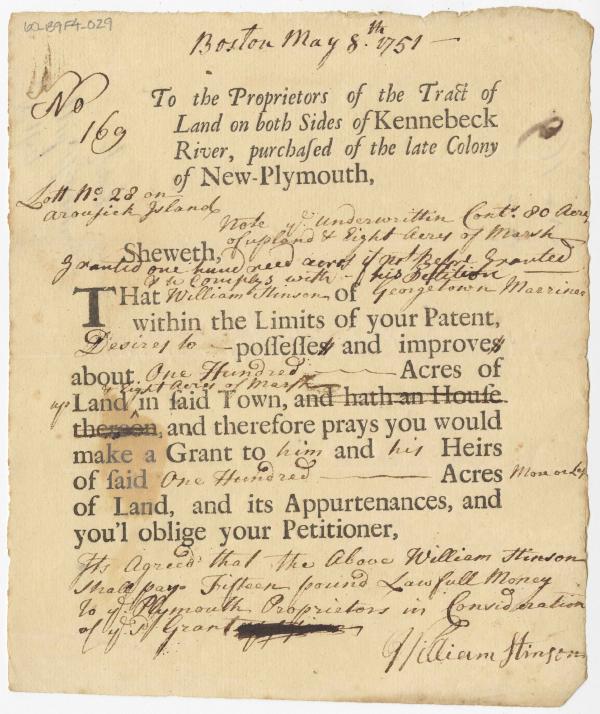 60-B9F4-029
Boston May 8.th 1751
No
169
To the Proprietors of the Tract of
Land on both Sides of Kennebeck
River, purchaſed of the late Colony
of New-Plymouth,
Lott No. 28 on
Arousick Island
Note ye. underwrittin Conts. 80 Acres
of upland & Eight Acres of Marsh
Sheweth,
Granted one hund need acres if not Before Granted
& he Complys with his Petition
THat William Stinson of Georgetown Marriner
within the Limits of your Patent,
Desires to poſſeſſes and improves
about One Hundred Acres of
& Eight Acres of Marsh
up Land in ſaid Town, and hath an Houſe
thereon, and therefore prays you would
make a Grant to him and his Heirs
of ſaid One Hundred Acres More or Less
of Land, and its Appurtenances, and
you'l oblige your Petitioner,
Its Agreed that the Above William Stinson
Shall pay Fifteen pound Lawfull Money
to ye. Plymouth Proprietors in Consideration
of ye. sd. Grant
William Stinson